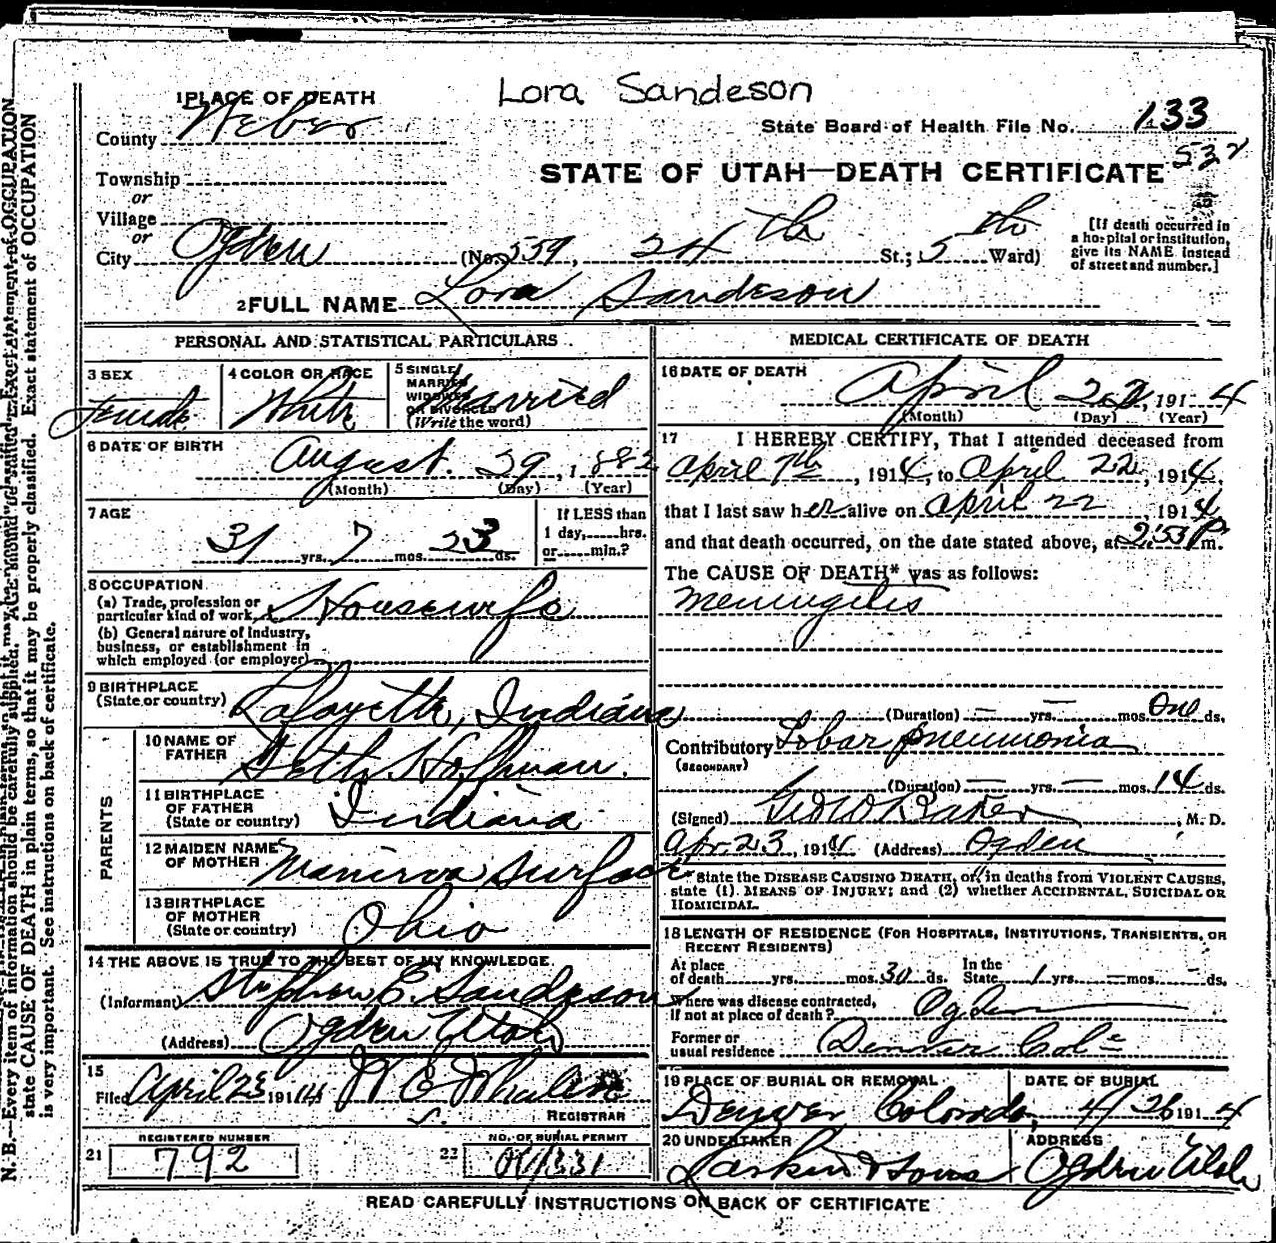 Lora Sandeson
1 PLACE OF DEATH
County Weber
State Board of Health File No. 133
532
Township
or
Village
or
STATE OF UTAH—DEATH CERTIFICATE
City Ogden (No. 559, 24th St.; 5th Ward)
[If death occurred in
a hospital or institution,
give its NAME instead
of street and number.]
2 FULL NAME Lora Sandeson
PERSONAL AND STATISTICAL PARTICULARS
3 SEX
Female
4 COLOR OR RACE
White
5 SINGLE
MARRIED
WIDOWED
OR DIVORCED
(Write the word)
Married
6 DATE OF BIRTH
August 29, 1882
(Month) (Day) (Year)
7 AGE
31 yrs. 7 mos. 23 ds.
If LESS than
1 day, hrs.
or min.?
8 OCCUPATION
(a) Trade, profession or
particular kind of work Housewife
(b) General nature of Industry,
business, or establishment in
which employed (or employer)
9 BIRTHPLACE
(State or country) Lafayette, Indiana
PARENTS
10 NAME OF
FATHER Hoffman.
11 BIRTHPLACE
OF FATHER
(State or country) Indiana
12 MAIDEN NAME
OF MOTHER Manirva Surface
13 BIRTHPLACE
OF MOTHER
(State or country) Ohio
14 THE ABOVE IS TRUE TO THE BEST OF MY KNOWLEDGE.
(Informant) Stephen E. Sandeson
(Address) Ogden Utah
15
Filed April 23 1914
REGISTRAR
REGISTERED NUMBER
21 792
NO. OF BURIAL PERMIT
22
MEDICAL CERTIFICATE OF DEATH
16 DATE OF DEATH
April 22, 1914
(Month) (Day) (Year)
17 I HEREBY CERTIFY, That I attended deceased from
April 7th, 1914, to April 22, 1914,
that I last saw her alive on April 22, 1914
and that death occurred, on the date stated above, at 2:53 P m.
The CAUSE OF DEATH* was as follows:
Meningitis
(Duration) — yrs. mos. One ds.
Contributory Lobar pneumonia
(SECONDARY)
(Duration) — yrs. — mos. 14 ds.
(Signed) Geo W Baker, M. D.
Apr. 23, 1914 (Address) Ogden
* State the DISEASE CAUSING DEATH, or, in deaths from VIOLENT CAUSES,
state (1) MEANS OF INJURY; and (2) whether ACCIDENTAL, SUICIDAL OR
HOMICIDAL.
18 LENGTH OF RESIDENCE (FOR HOSPITALS, INSTITUTIONS, TRANSIENTS, OR
RECENT RESIDENTS)
At place of death yrs. mos. 30 ds. In the State 1 yrs. — mos. — ds.
Where was disease contracted,
if not at place of death? Ogden
Former or
usual residence Denver Colo
19 PLACE OF BURIAL OR REMOVAL
Denver Colorado,
DATE OF BURIAL
4/26 1914
20 UNDERTAKER
Larkin & Sons
ADDRESS
Ogden Utah
READ CAREFULLY INSTRUCTIONS ON BACK OF CERTIFICATE
N. B.—Every item of information should be carefully supplied. AGE should be stated EXACTLY.
state CAUSE OF DEATH in plain terms, so that it may be properly classified. Exact statement of OCCUPATION
is very important. See instructions on back of certificate.